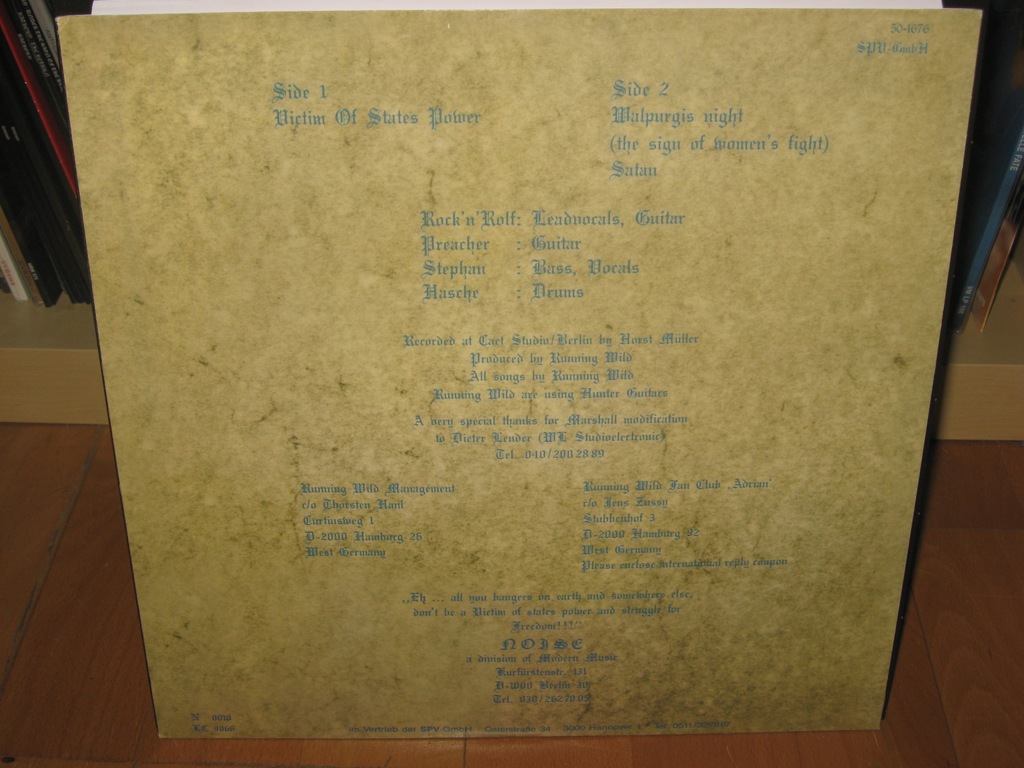 50-1676
SPV-GmbH
Side 1
Victim Of States Power
Side 2
Walpurgis night
(the sign of women's fight)
Satan
Rock'n'Rolf: Leadvocals, Guitar
Preacher : Guitar
Stephan : Bass, Vocals
Hasche : Drums
Recorded at Caet Studio/Berlin by Horst Müller
Produced by Running Wild
All songs by Running Wild
Running Wild are using Hunter Guitars
A very special thanks for Marshall modification
to Dieter Lender (WL Studioelectronic)
Tel. 040/200 28 89
Running Wild Management
c/o Thorsten Hanl
Curtiusweg 1
D-2000 Hamburg 26
West Germany
Running Wild Fan Club „Adrian'
c/o Jens Zussy
Stubbenhof 3
D-2000 Hamburg 92
West Germany
Please enclose international reply coupon
„Eh ... all you bangers on earth and somewhere else,
don't be a Victim of states power and struggle for
Freedom!!!"
NOISE
a division of Modern Music
Kurfürstenstr. 131
D-1000 Berlin 30
Tel. 030/262 70 05
N 0010
im Vertrieb der SPV GmbH 3000 Hannover 1